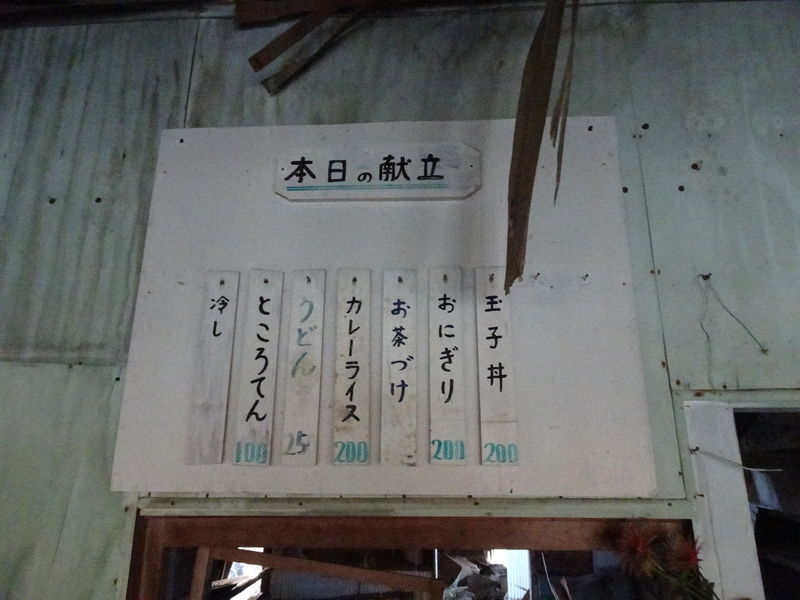 本日の献立
玉子丼
200
おにぎり
200
お茶づけ
カレーライス
200
うどん
25
ところてん
100
冷し